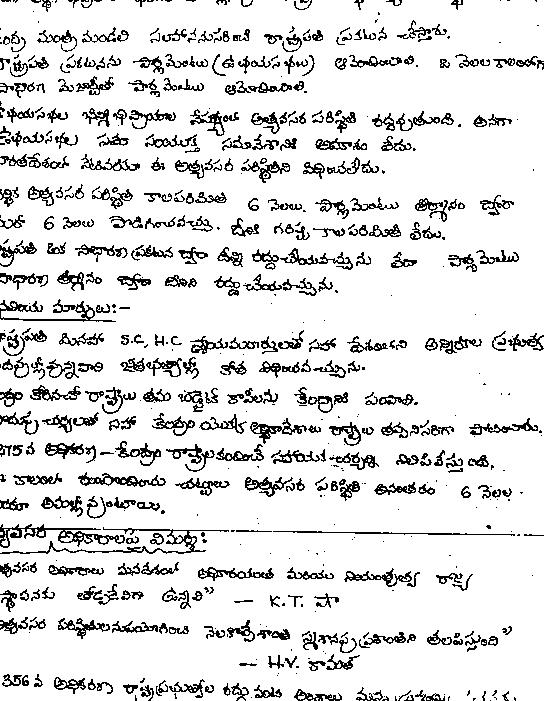 కేంద్ర మంత్రి మండలి సలహాననుసరించి రాష్ట్రపతి ప్రకటన చేస్తారు.
రాష్ట్రపతి ప్రకటనను పార్లమెంటు (ఉభయసభలు) ఆమోదించాలి. 2 నెలల కాలంలోగా
సాధారణ మెజార్టీతో పార్లమెంటు ఆమోదించాలి.
ఉభయసభల భిన్నాభిప్రాయాల నేపథ్యంలో అత్యవసర పరిస్థితి రద్దవుతుంది. అనగా
ఉభయసభల సమా సంయుక్త సమావేశానికి అవకాశం లేదు.
భారతదేశంలో నేటివరకూ ఈ అత్యవసర పరిస్థితిని విధించలేదు.
ఆర్థిక అత్యవసర పరిస్థితి కాలపరిమితి 6 నెలలు. పార్లమెంటు తీర్మానం ద్వారా
మరో 6 నెలలు పొడిగించవచ్చు. దీనికి గరిష్ఠ కాలపరిమితి లేదు.
రాష్ట్రపతి ఒక సాధారణ ప్రకటన ద్వారా దీన్ని రద్దుచేయవచ్చును లేదా పార్లమెంటు
సాధారణ తీర్మానం ద్వారా దీనిని రద్దుచేయవచ్చును.
మార్పులు:-
రాష్ట్రపతి మినహా S.C, H.C న్యాయమూర్తులతో సహా దేశంలోని అన్నిరకాల ప్రభుత్వ
జీతభత్యాల్లో కోత విధించవచ్చును.
కేంద్రం కోరినచో రాష్ట్రాలు తమ బడ్జెట్ కాపీలను కేంద్రానికి పంపాలి.
పొదుపు చర్యలతో సహా కేంద్రం యొక్క ఆర్థికాదేశాలు రాష్ట్రాలు తప్పనిసరిగా పాటించాలి.
275వ అధికరణ - కేంద్రం రాష్ట్రాలకందించే సహాయక గ్రాంట్లను నిలిపివేస్తుంది.
ఈ కాలంలో రూపొందించిన చట్టాలు అత్యవసర పరిస్థితి అనంతరం 6 నెలల
అమల్లో వుంటాయి.
అత్యవసర అధికారాలపై విమర్శ:
అత్యవసర అధికారాలు మనదేశంలో అధికారయుత మరియు నియంతృత్వ రాజ్య
స్థాపనకు తోడ్పడేవిగా ఉన్నవి" - K.T. షా
అత్యవసర పరిస్థితులనుపయోగించి నెలకొల్పేశాంతి స్మశానపు ప్రశాంతిని తలపిస్తుంది"
- H.V. కామత్
356వ అధికరణ రాష్ట్రప్రభుత్వాల రద్దు వంటి అంశాలు